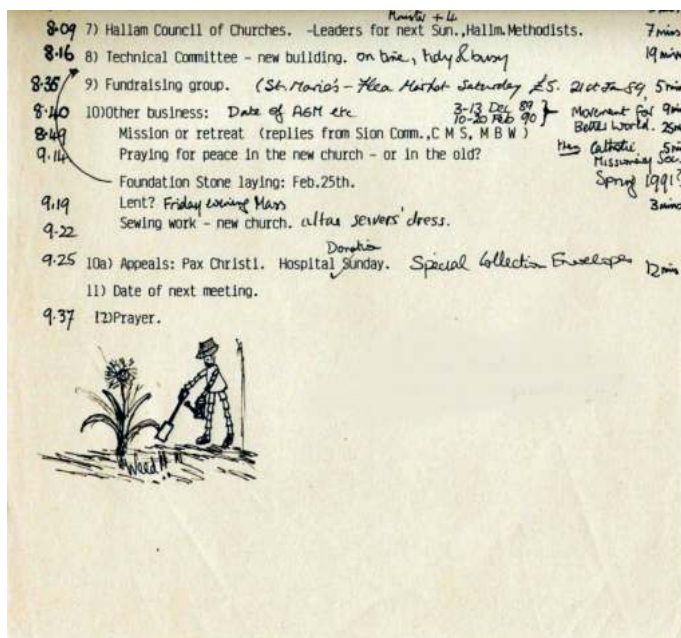 Minister + 4
8.09 7) Hallam Council of Churches. -Leaders for next Sun.,Hallm.Methodists. 7 mins
8.16 8) Technical Committee - new building. on time, tidy & busy 19 mins
8.35 9) Fundraising group. (St. Marie's - Flea Market Saturday £5. 21st Jan 89, 5 mins
8.40 10)Other business: Date of AGM etc 3-13 Dec 89 Movement for 9 mins
10-20 Feb 90 Better World. 25 mins
8.49 Mission or retreat (replies from Sion Comm.,C M S, M B W )
9.14 Praying for peace in the new church - or in the old? Catholic 5 mins
Missionary Soc.
Foundation Stone laying: Feb.25th. Spring 1991?
9.19 Lent? Friday evening Mass 3 mins
9.22 Sewing work - new church. altar servers' dress.
Donation
9.25 10a) Appeals: Pax Christi. Hospital Sunday. Special Collection Envelopes 12 mins
11) Date of next meeting.
9.37 12)Prayer.
Weed!! !!